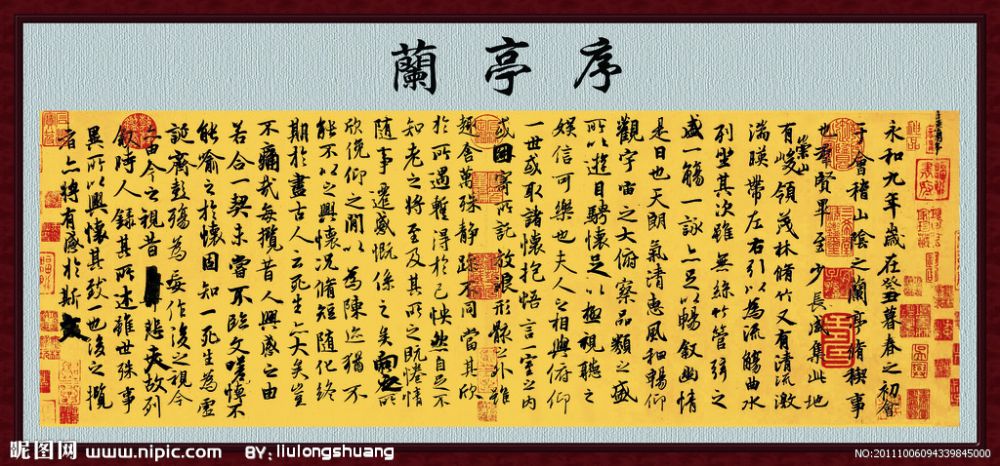 蘭亭序
永和九年歲在癸丑暮春之初會
于會稽山陰之蘭亭脩稧事
也群賢畢至少長咸集此地
有崇山峻領茂林脩竹又有清流激
湍暎帶左右引以為流觴曲水
列坐其次雖無絲竹管弦之
盛一觴一詠亦足以暢敘幽情
是日也天朗氣清惠風和暢仰
觀宇宙之大俯察品類之盛
所以遊目騁懷足以極視聽之
娛信可樂也夫人之相與俯仰
一世或取諸懷抱悟言一室之內
或因寄所託放浪形骸之外雖
趣舍萬殊靜躁不同當其欣
於所遇暫得於己怏然自足不
知老之將至及其所之既惓情
隨事遷感慨係之矣向之所
欣俛仰之閒以為陳迹猶不
能不以之興懷況脩短隨化終
期於盡古人云死生亦大矣豈
不痛哉每攬昔人興感之由
若合一契未嘗不臨文嗟悼不
能喻之於懷固知一死生為虛
誕齊彭殤為妄作後之視今
亦由今之視昔悲夫故列
敘時人錄其所述雖世殊事
異所以興懷其致一也後之攬
者亦將有感於斯文
昵图网 www.nipic.com BY: liulongshuang
NO:20111006094339845000